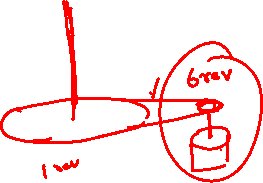 6 rev
1 rev